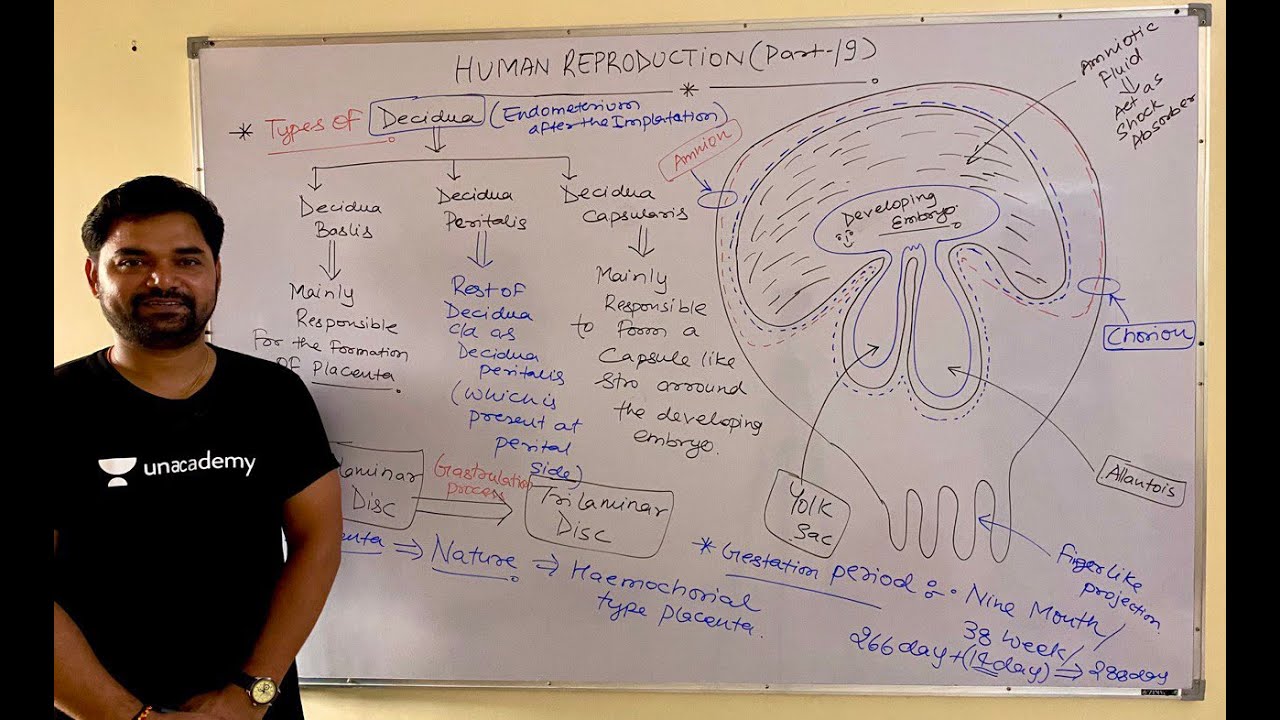 HUMAN REPRODUCTION (Part-19)
* Types of Decidua (Endometerium
after the Implatation)
Decidua
Baslis
Mainly
Responsible
For the Formation
OF Placenta
Decidua
Peritalis
Rest of
Decidua
c/a as
Decidua
peritalis
(which is
present at
perital
side)
Decidua
Capsularis
Mainly
Responsible
to Form a
Capsule like
Stro arround
the developing
embryo.
Amnion
Amniotic
Fluid
Act as
Shock
Absorber
Developing
Embryo.
Chorion
Allantois
Yolk
Sac
Finger like
projection.
laminar
Disc
Gastrulation
process
Trilaminar
Disc
enta ⇒ Nature ⇒ Haemochorial
type placenta.
* Gestation period :- Nine Month/
38 week/
266 day + (14 day) ⇒ 280 day
unacademy